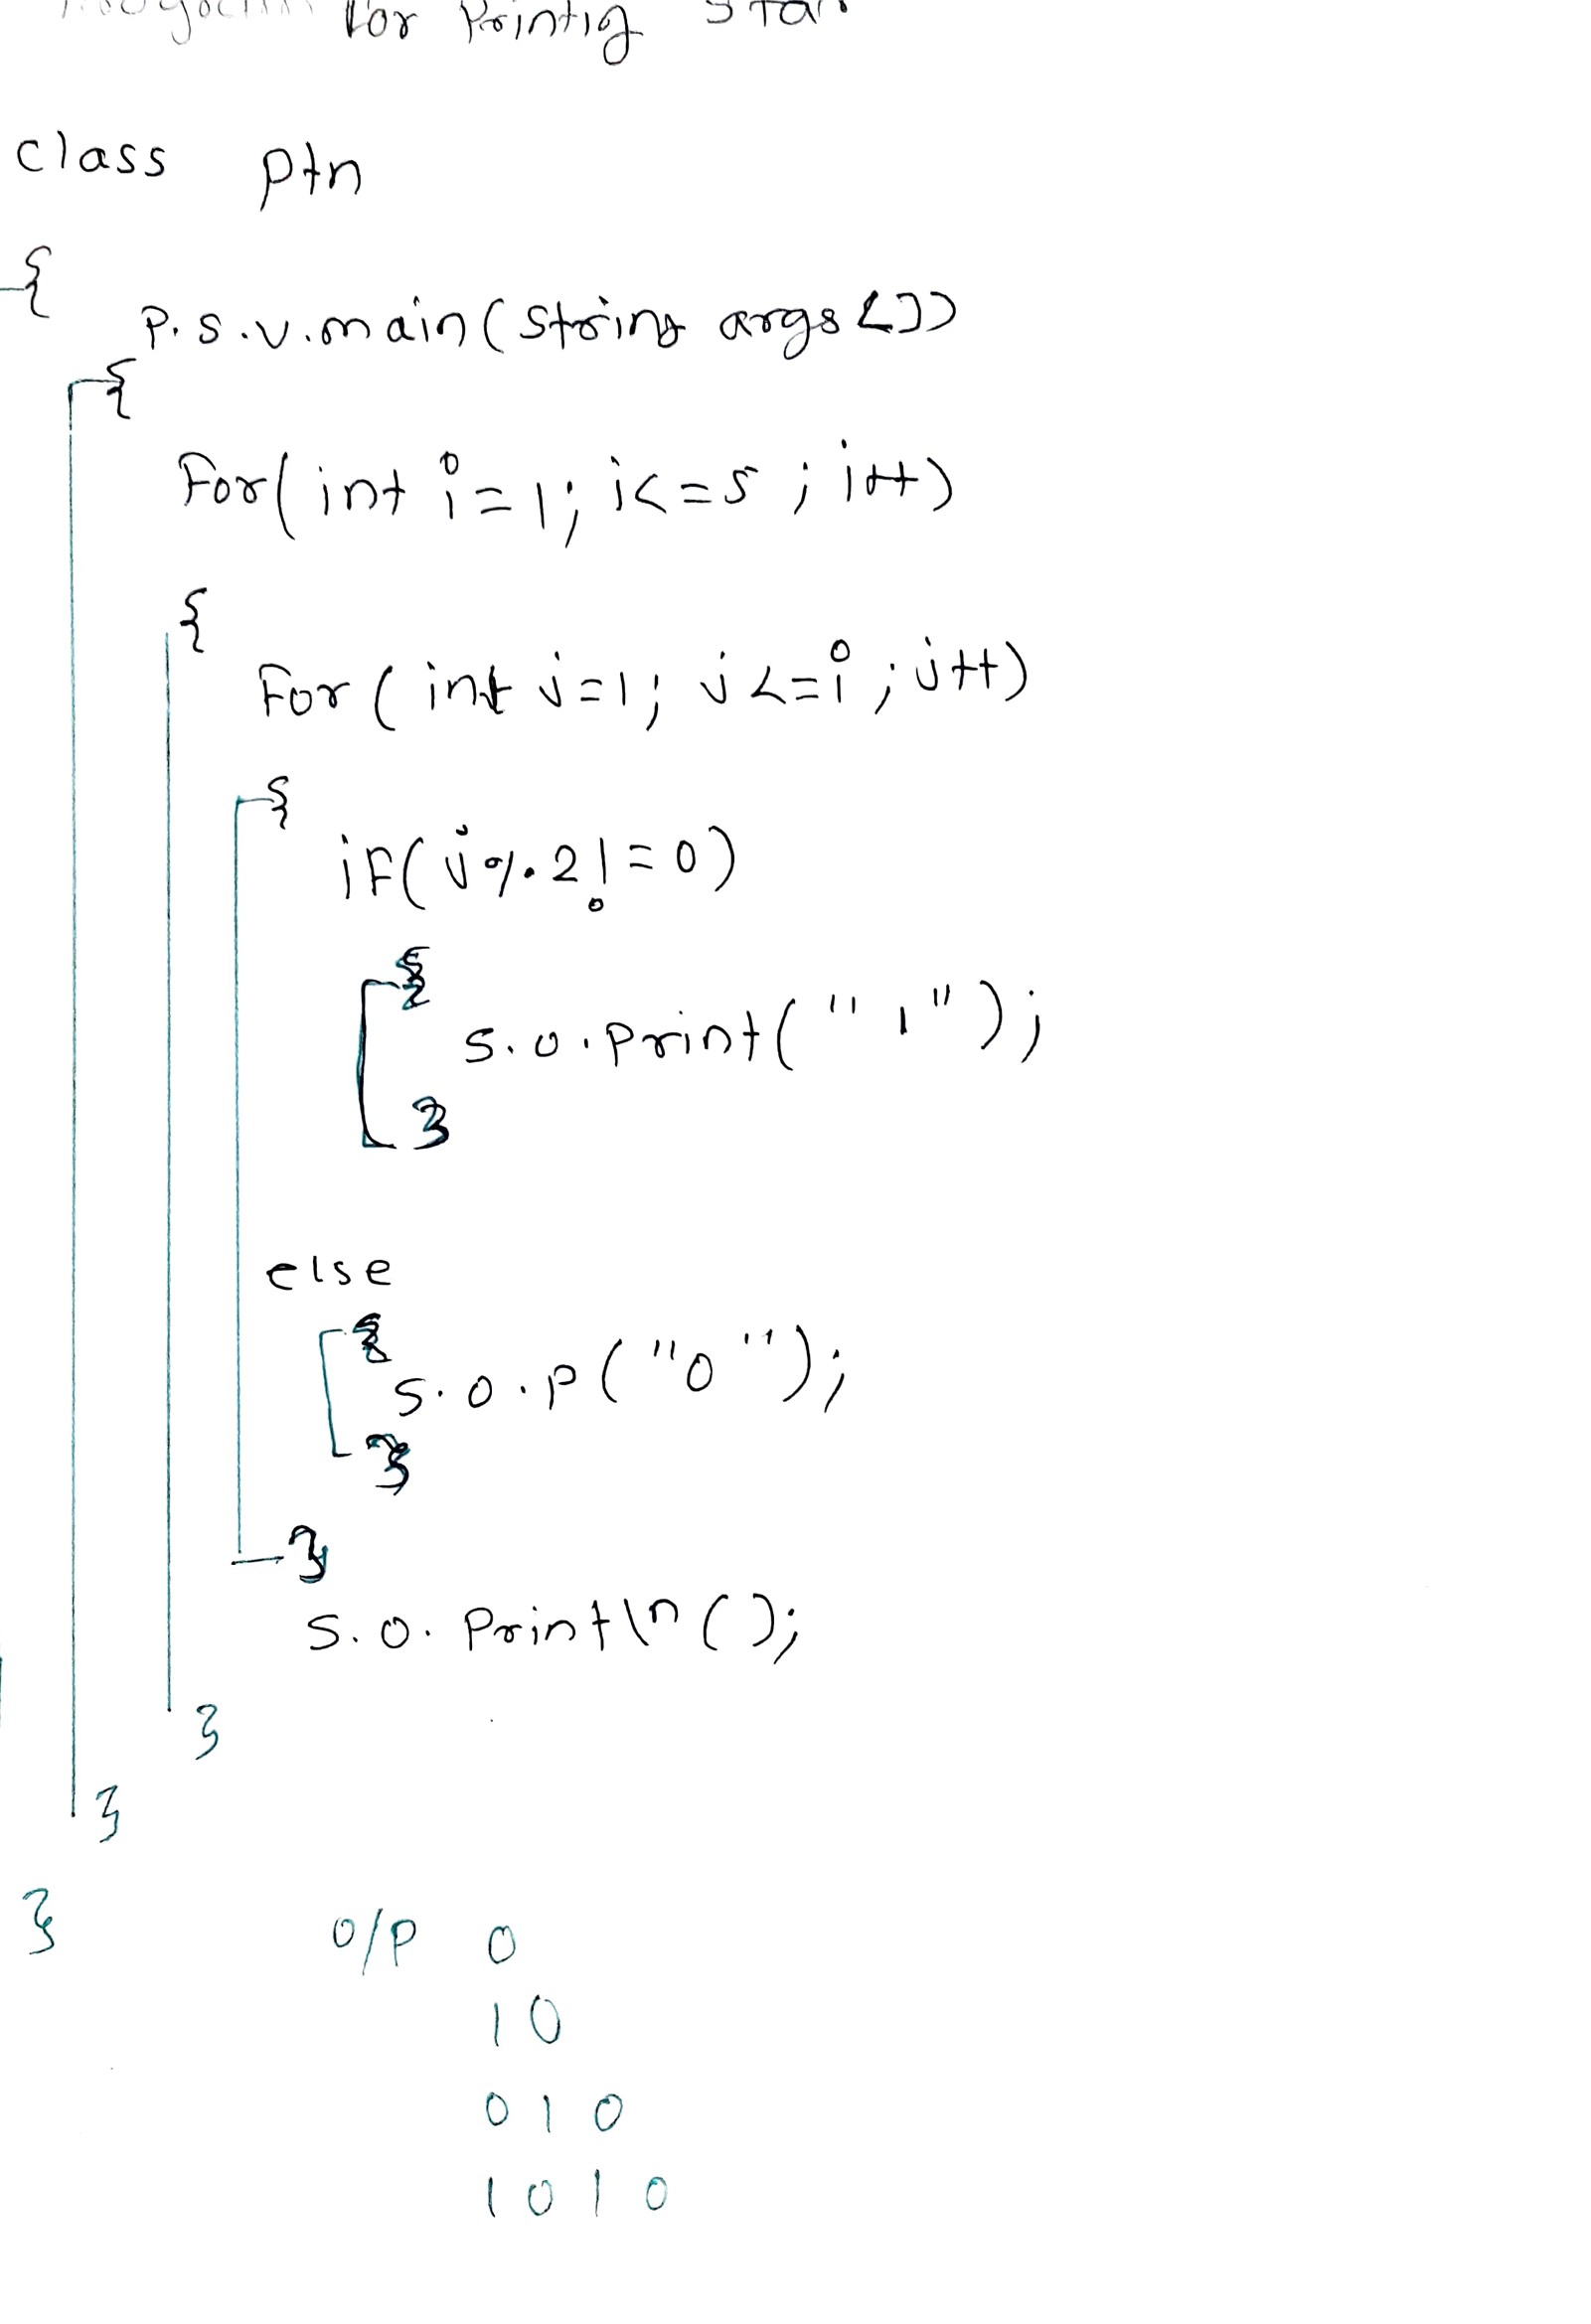 for Printig Star
class Ptn
{
P.S.V.main(String args[])
{
For(int i=1; i<=5 ; i++)
{
For( int j=1; j<=i ; j++)
{
if(j%2!=0)
{
S.O.Print("1");
}
else
{
S.O.P("0");
}
}
S.O.Println();
}
}
}
O/P 0
1 0
0 1 0
1 0 1 0